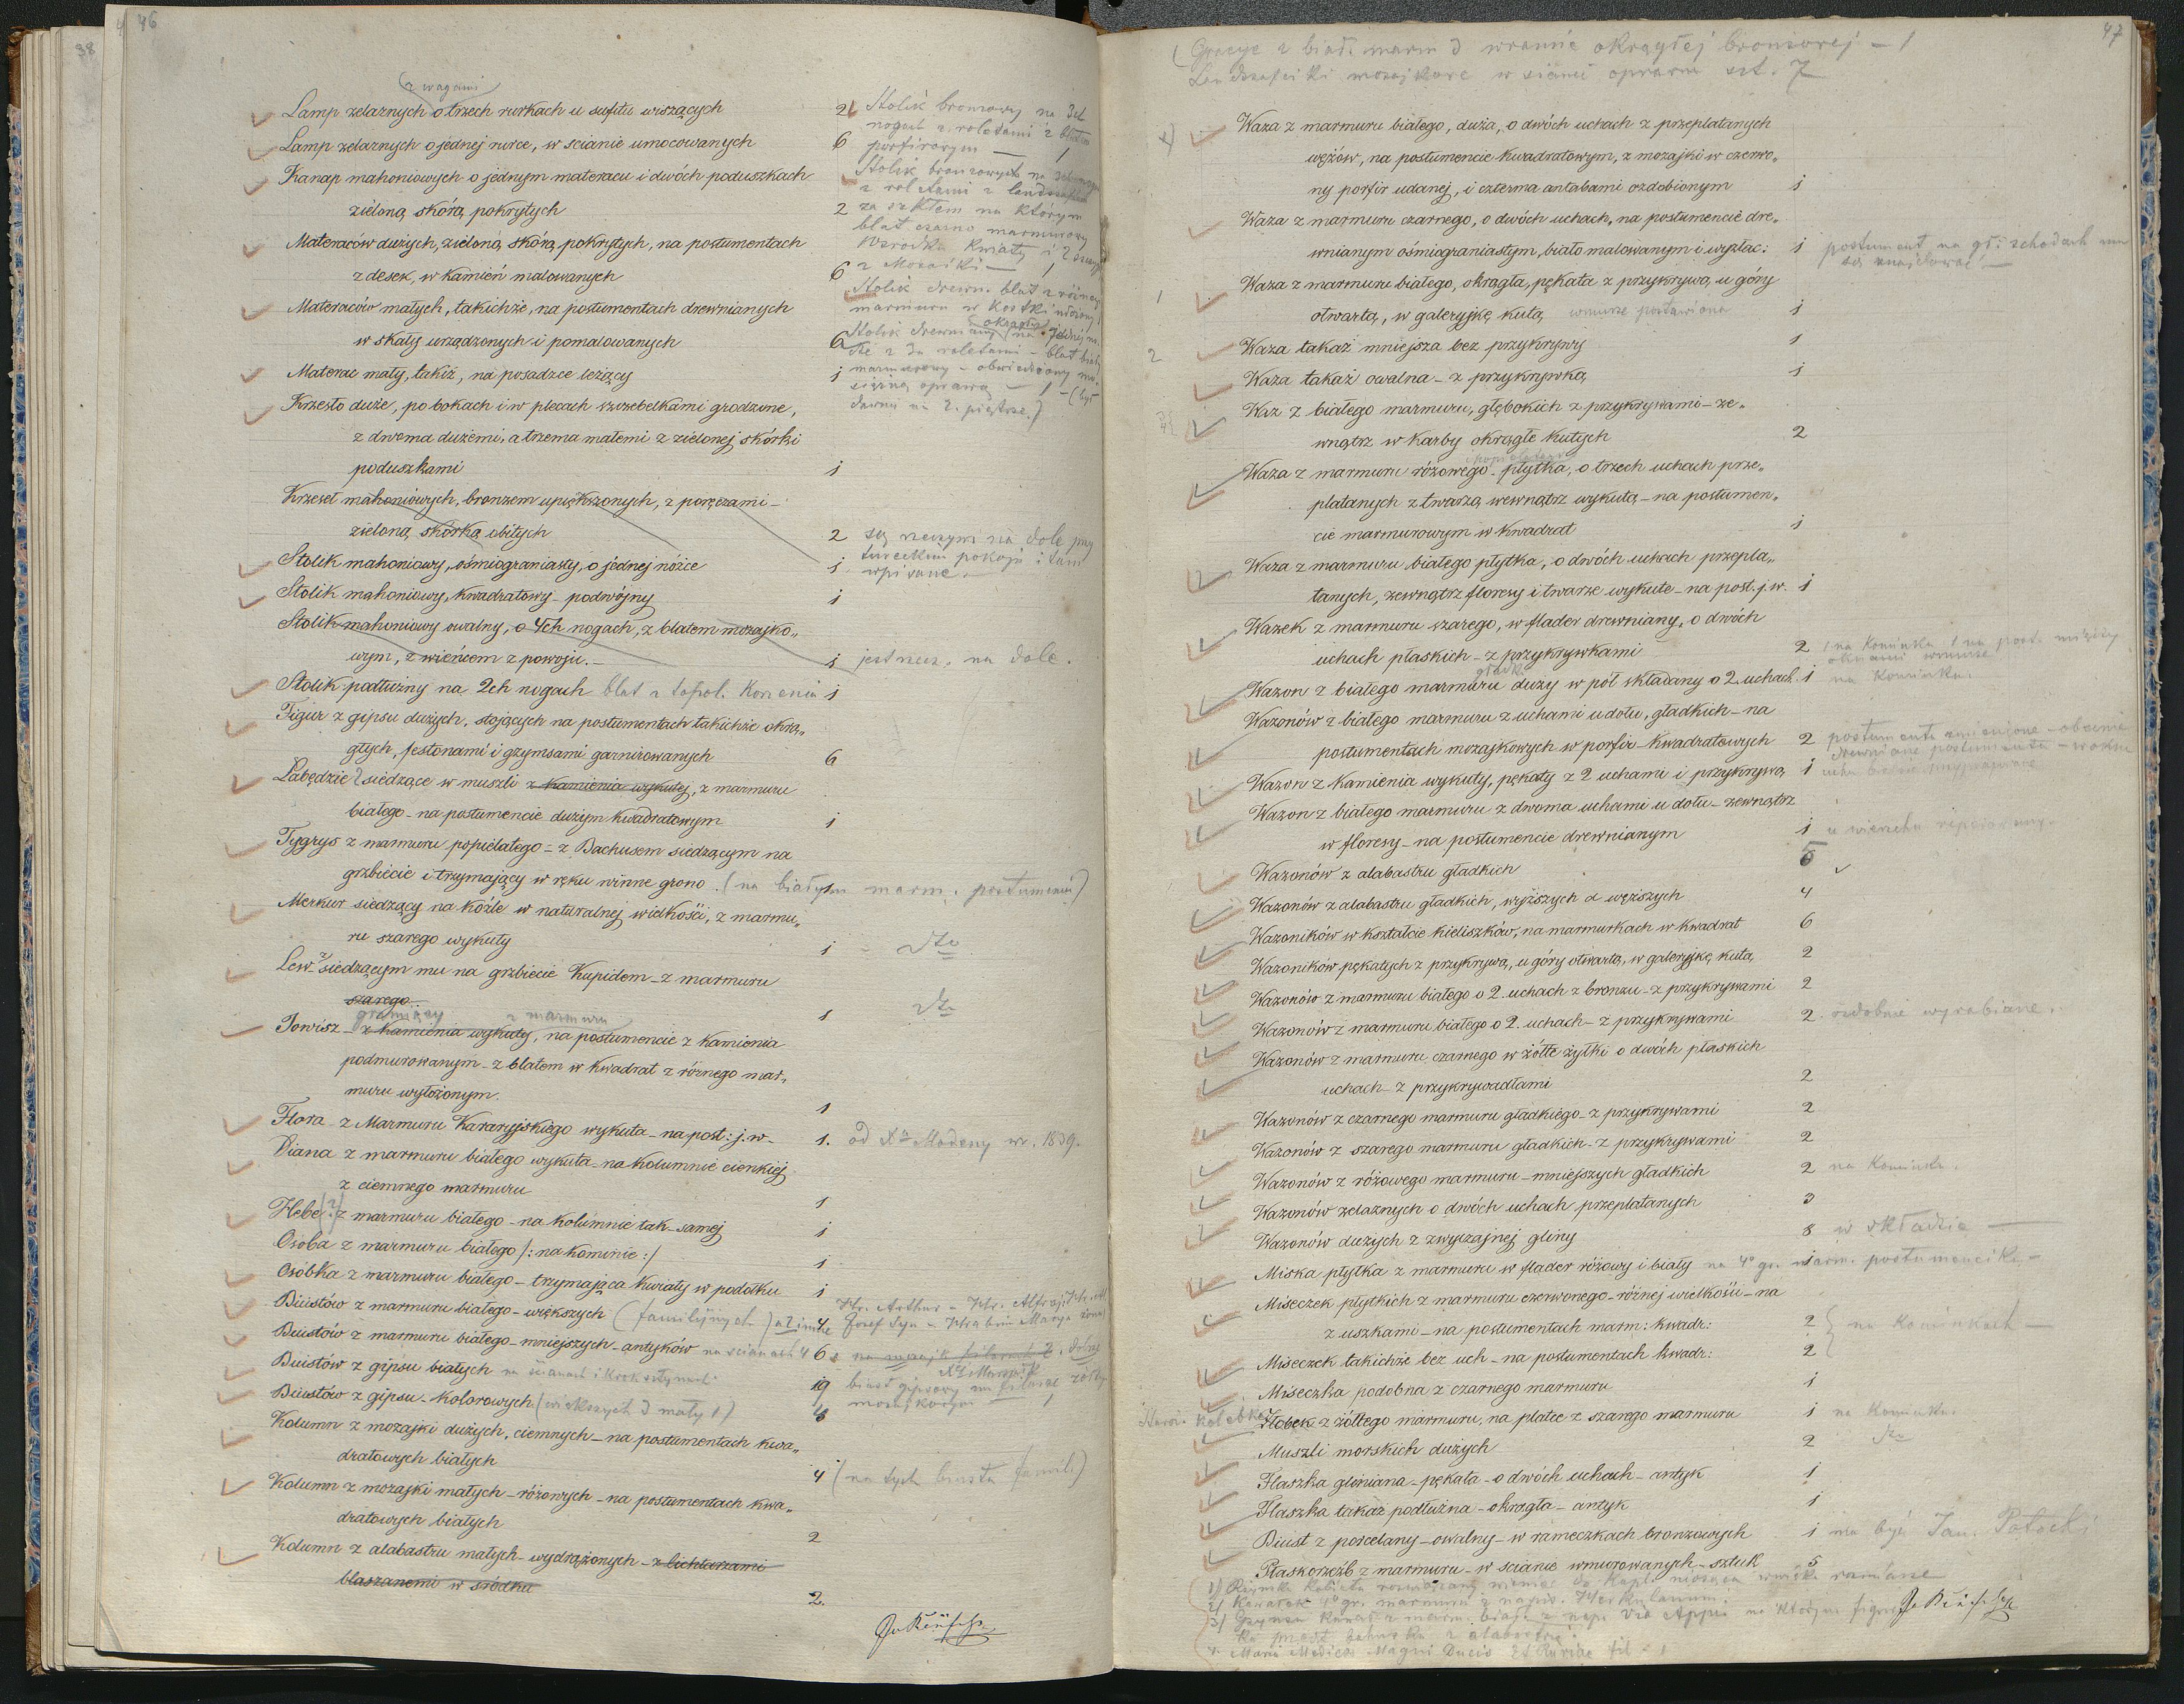 46
38
(z wagami
Lamp żelaznych o trzech rurkach u sufitu wiszących 2
Lamp żelaznych o jednej rurce, w scianie umocowanych 6
Kanap mahoniowych o jednym materacu i dwóch poduszkach
zieloną skórą pokrytych 2
Materaców dużych, zieloną skórą pokrytych, na postumentach
z desek, w kamień malowanych 6
Materaców małych, takichże, na postumentach drewnianych
w skały urządzonych i pomalowanych 6
Materac mały, takiż, na posadzce leżący 1
Krzesło duże, po bokach i w plecach szczebelkami grodzone,
z dwoma dużemi, a trzema małemi z zielonej skórki
poduszkami 1
Krzeseł mahoniowych, bronzem upiększonych, z poręczami –
zieloną skórką obitych 2
Stolik mahoniowy, ośmiograniasty, o jednej nóżce 1
Stolik mahoniowy, kwadratowy – podwójny 1
Stolik mahoniowy owalny, o 4ch nogach, z blatem mozajko„
wym, z wieńcem z powoju. – 1 jest na dole.
Stolik podłużny na 2ch nogach blat z 1
Figur z gipsu dużych, stojących na postumentach takichże okrą„
głych, festonami i gzymsami garnirowanych 6
Łabędzie 2 siedzące w muszli z kamienia wykutej, z marmuru
białego – na postumencie dużym kwadratowym 1
Tygrys z marmuru popielatego – z Bachusem siedzącym na
grzbiecie i trzymający w ręku winne grono. (na białym marm. postumencie) 1
Merkur siedzący na koźle w naturalnej wielkości, z marmu„
ru szarego wykuty 1 dto
Lew z siedzącym mu na grzbiecie Kupidem – z marmuru
szarego 1 dto
gromiący z marmuru
Jowisz – z kamienia wykuty, na postumencie z kamienia
podmurowanym – z blatem w kwadrat z różnego mar„
muru wyłożonym. 1
Flora z Marmuru Kararyjskiego wykuta – na post: j. w – 1. od Xa Modeny w r. 1839.
Diana z marmuru białego wykuta – na kolumnie cienkiej
z ciemnego marmuru 1
Hebe (?) z marmuru białego – na kolumnie tak–samej 1
Osoba z marmuru białego /: na kominie :/ 1
Osóbka z marmuru białego – trzymająca kwiaty w podołku 1
Biustów z marmuru białego – większych (familijnych) 4
Biustów z marmuru białego – mniejszych – antyków na scianach 4 6
Biustów z gipsu białych na scianach i 19
Biustów z gipsu – kolorowych (większych 3 mały 1) 4
Kolumn z mozajki dużych, ciemnych – na postumentach kwa„
dratowych białych 4 (na tych biusta famil.)
Kolumn z mozajki małych – różowych – na postumentach kwa„
dratowych białych 2
Kolumn z alabastru małych – wydrążonych – z lichtarzami
blaszanemi w środku 2.
Stolik bronzowy na 3ch
nogach z roletami z blatem
porfirowym — 1
Stolik bronzowych na
z roletami z
za szkłem na którym
blat czarno marmurowy
w srodku kwiaty i 2
z Mozaiki — 1
Stolik drewn. blat z różnego
marmuru w kostki
okrągły
Stolik drewniany na jednej
z 3a roletami – blat biały
marmurowy – obwiedziony
oprawą — 1 – (był
dawniej na 2. piętrze.)
są na dole przy
tureckim pokoju i tam
wpisane.
Hr. Arthur – Hr. Alfred
Józef Syn – Hrabina Marya
biust gipsowy na
mozajkowym — 1
47
Gracye z biał. marm 3 w ramie okrągłej bronzowej – 1
Landszafciki mozajkowe w scianie oprawne szt. 7
Waza z marmuru białego, duża, o dwóch uchach z przeplatanych
wężów, na postumencie kwadratowym, z mozajki w czerwo„
ny porfir udanej, i czterma antabami ozdobionym 1
Waza z marmuru czarnego, o dwóch uchach, na postumencie dre„
wnianym ośmiograniastym, biało malowanym i wyzłac: 1 postument na gł: schodach
się znajdować —
Waza z marmuru białego, okrągła, pękata z przykrywą, u góry
otwartą, w galeryjkę kutą w murze postawiona 1
Waza takaż mniejsza bez przykrywy 1
Waza takaż owalna – z przykrywką 1
Waz z białego marmuru, głębokich z przykrywami – ze„
wnątrz w karby okrągłe kutych 2
i popielatego
Waza z marmuru różowego – płytka, o trzech uchach prze„
platanych z twarzą wewnątrz wykutą – na postumen„
cie marmurowym w kwadrat 1
Waza z marmuru białego płytka, o dwóch uchach przepla„
tanych, zewnątrz floresy i twarze wykute – na post. j. w. 1
Wazek z marmuru szarego, w flader drewniany, o dwóch
uchach płaskich – z przykrywkami 2 1 na kominku 1 na post. między
oknami w murze
gładk.
Wazon z białego marmuru duży w pół składany o 2. uchach. 1 na kominku.
Wazonów z białego marmuru z uchami u dołu, gładkich – na
postumentach mozajkowych w porfir – kwadratowych 2 postumenta zmienione – obecnie
drewniane postumenta –
Wazon z kamienia wykuty, pękaty z 2 uchami i przykrywą 1
Wazon z białego marmuru z dwoma uchami u dołu – zewnątrz
w floresy – na postumencie drewnianym 1 u wierzchu reperowany.
Wazonów z alabastru gładkich 5
Wazonów z alabastru gładkich, wyższych a węższych 4
Wazoników w kształcie kieliszków, na marmurkach w kwadrat 6
Wazoników pękatych z przykrywą, u góry otwartą, w galeryjkę kutą 2
Wazonów z marmuru białego o 2. uchach z bronzu – z przykrywami 2
Wazonów z marmuru białego o 2. uchach – z przykrywami 2. ozdobnie wyrabiane.
Wazonów z marmuru czarnego w żółte żyłki o dwóch płaskich
uchach – z przykrywadłami 2
Wazonów z czarnego marmuru gładkiego – z przykrywami 2
Wazonów z szarego marmuru gładkich – z przykrywami 2
Wazonów z różowego marmuru – mniejszych gładkich 2 na komink.
Wazonów żelaznych o dwóch uchach przeplatanych 3
Wazonów dużych z zwyczajnej gliny 8 w składzie —
Miska płytka z marmuru w flader różowy i biały na 4o gr. marm. postumenciku – 1
Miseczek płytkich z marmuru czerwonego – różnej wielkości – na
z uszkami – na postumentach marm: kwadr: 2 na kominkach —
Miseczek takichże bez uch – na postumentach kwadr: 2
Miseczka podobna z czarnego marmuru 1
kolebka
Żłobek z żółtego marmuru, na płatce z szarego marmuru 1 na kominku.
Muszli morskich dużych 2 dto
Flaszka gliniana – pękata – o dwóch uchach – antyk 1
Flaszka takaż podłużna – okrągła – antyk 1
Biust z porcelany – owalny – w rameczkach bronzowych 1 ma być Jan. Potocki
Płaskorzeźb z marmuru – w scianie wmurowanych – sztuk 5
2) Kawałek 4o gr. marmuru z napis. Herkulanum.
3) kawał z marm. biał. z nap. Via Appia na którym
z alabastru.